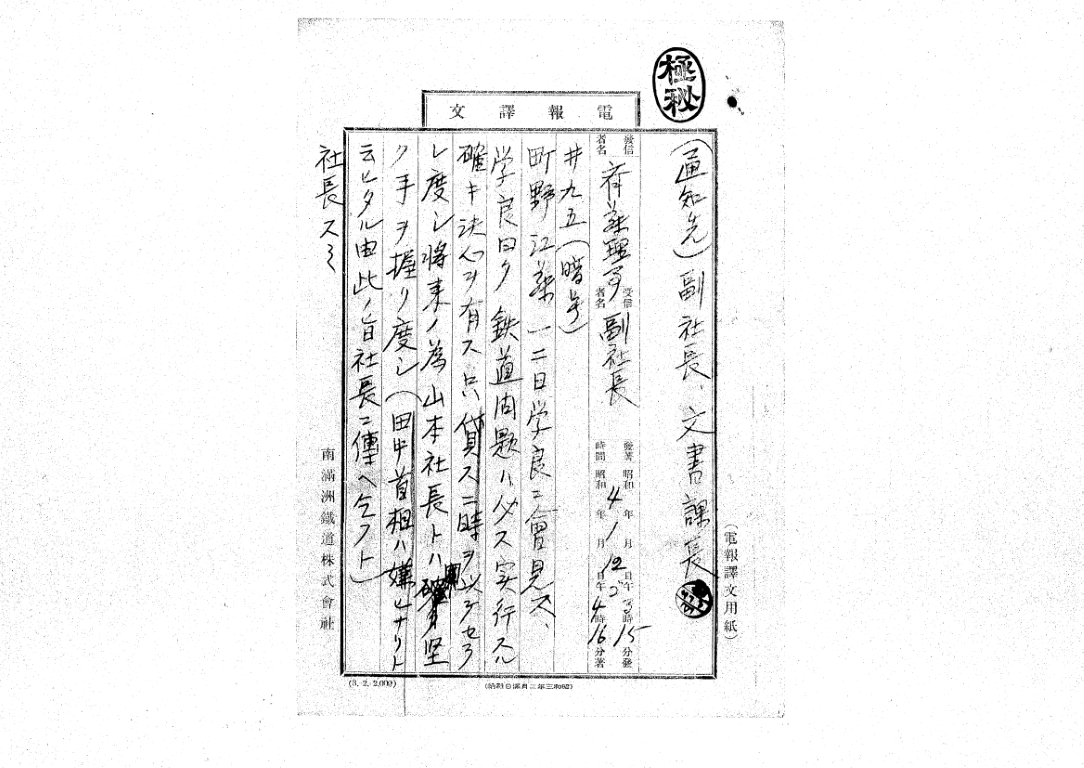 極秘
電報譯文
(通知先)副社長、文書課長
發信者名 斉藤理事 受信者名 副社長
發著時間 昭和4年1月12日午 3時15分發
昭和 年 月 日午 4時16分著
#九五(暗号)
町野江藤一二日学良ニ會見ス、
学良曰ク鉄道問題ハ必ス実行スル
確キ決心ヲ有ス只貸スニ時ヲ以テセラ
レ度シ将来ノ為山本社長トハ堅
ク手ヲ握リ度シ(田中首相ハ嫌ヒナリト
云ヒタル由此ノ旨社長ニ傳ヘ乞フト)
社長スミ
南滿洲鐵道株式會社
(電報譯文用紙)
(3. 2. 2,000)